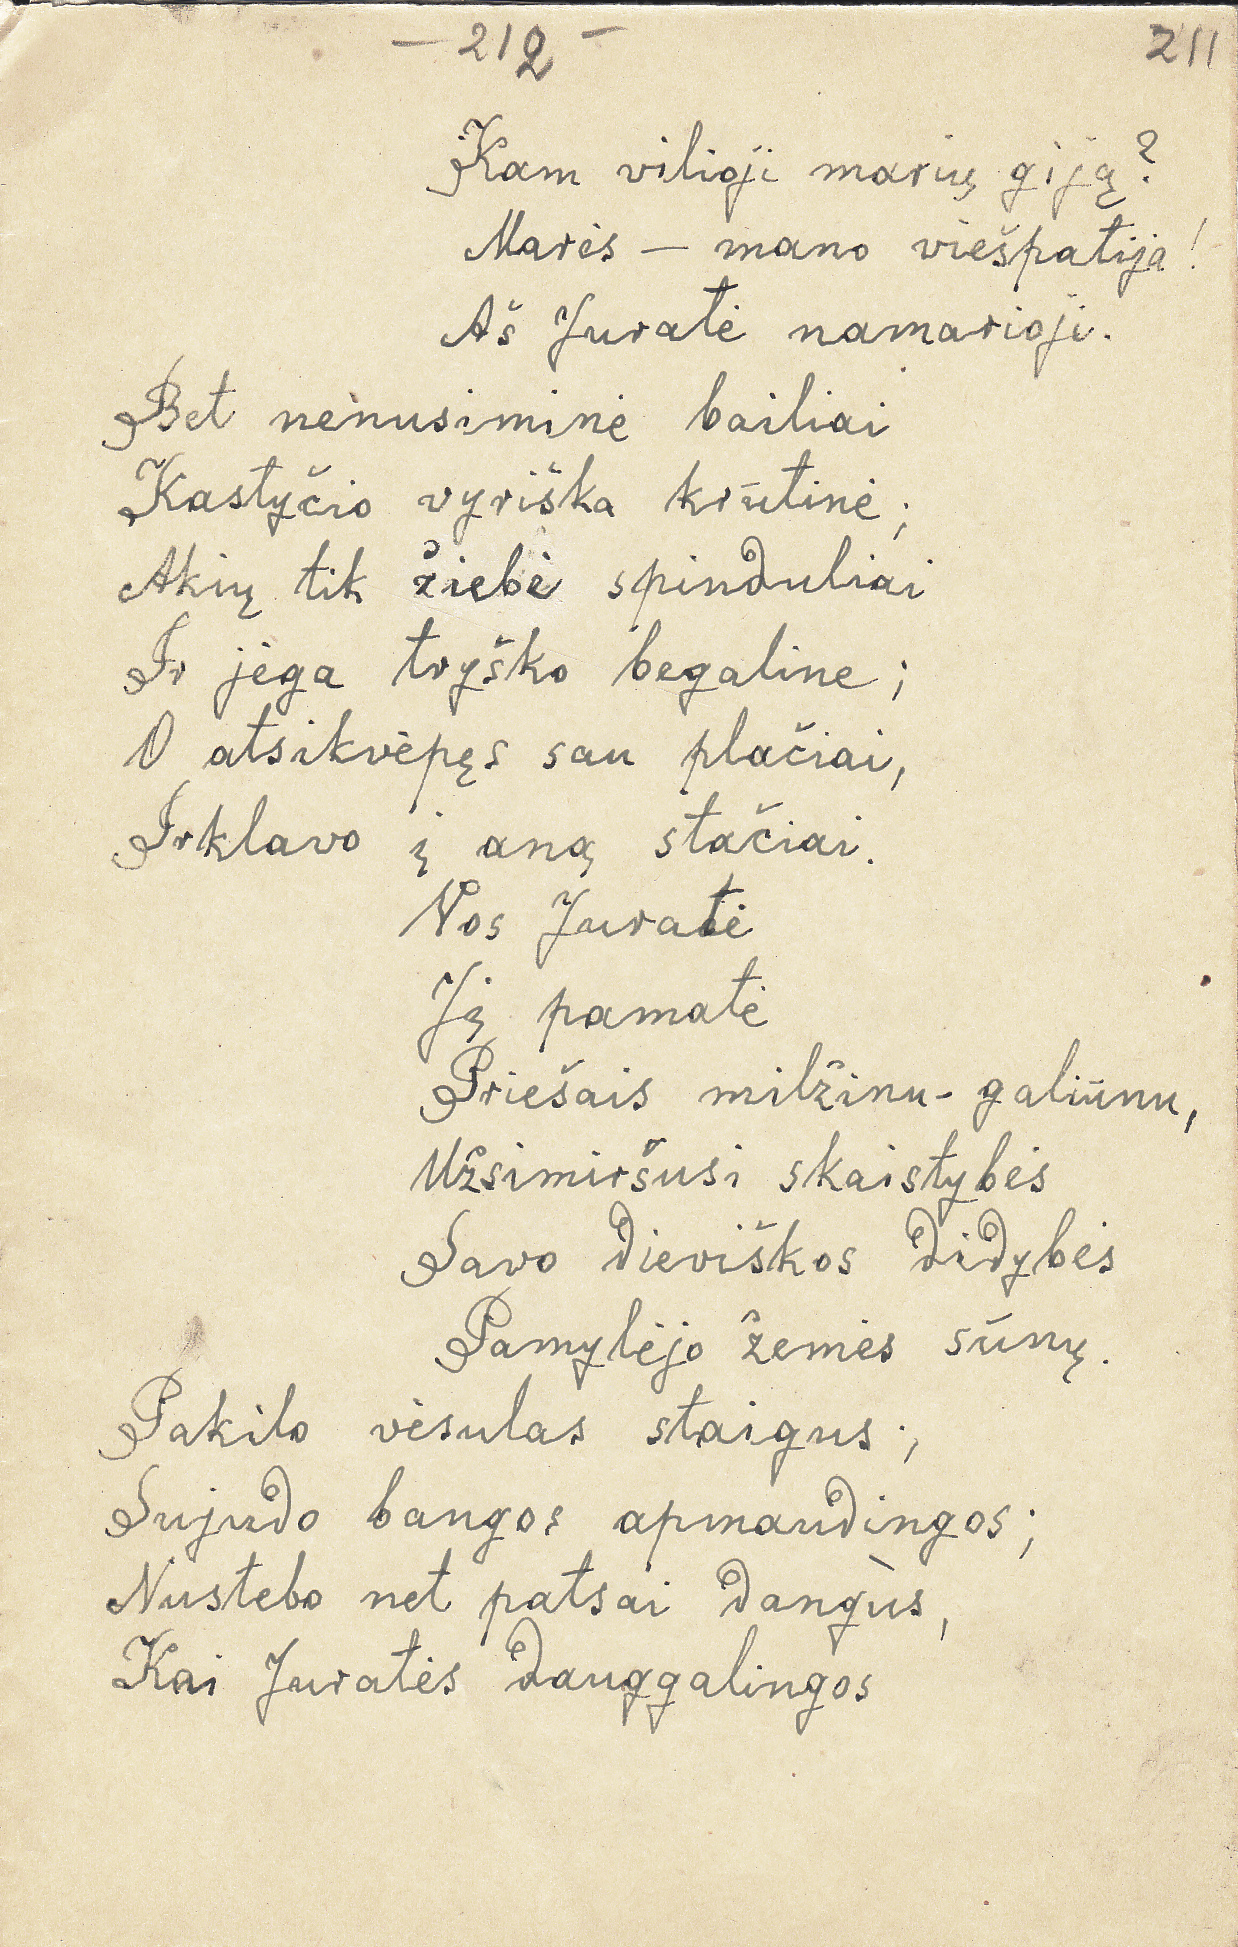 — 212 —
211
Kam vilioji marių giją?
Marės — mano viešpatija!
Aš Juratė namarioji.
Bet nenusiminė bailiai
Kastyčio vyriška krūtinė;
Akių tik žiebė spinduliai
Ir jėga tryško begaline;
O atsikvėpęs sau plačiai,
Irklavo į aną stačiai.
Nos Juratė
Jį pamatė
Priešais milžinu-galiūnu,
Užsimiršusi skaistybės
Savo dieviškos didybės
Pamylėjo žemės sūnų.
Pakilo vėsulas staigus;
Sujudo bangos apmaudingos;
Nustebo net patsai dangùs,
Kai Juratės dauggalingos